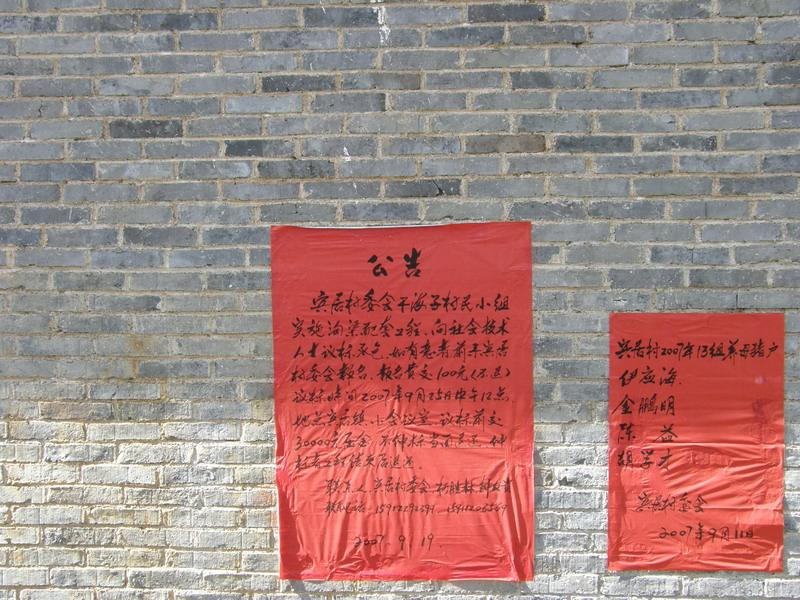 公告
宾居村委会干海子村民小组
实施沟渠配套工程、向社会技术
人士议标承包,如有意者前来宾居
村委会报名,报名费交100元(不退)
议标时间2007年9月25日中午12点
地点宾居镇小会议室 议标前交
30000元压金 中标
工程结束后退还。
联系人:宾居村委会
联系电话:
2007.9.19.
宾居村2007年13组养母猪户
伊应海
金鹏明
陈 益
胡学才
宾居村委会
2007年9月11日